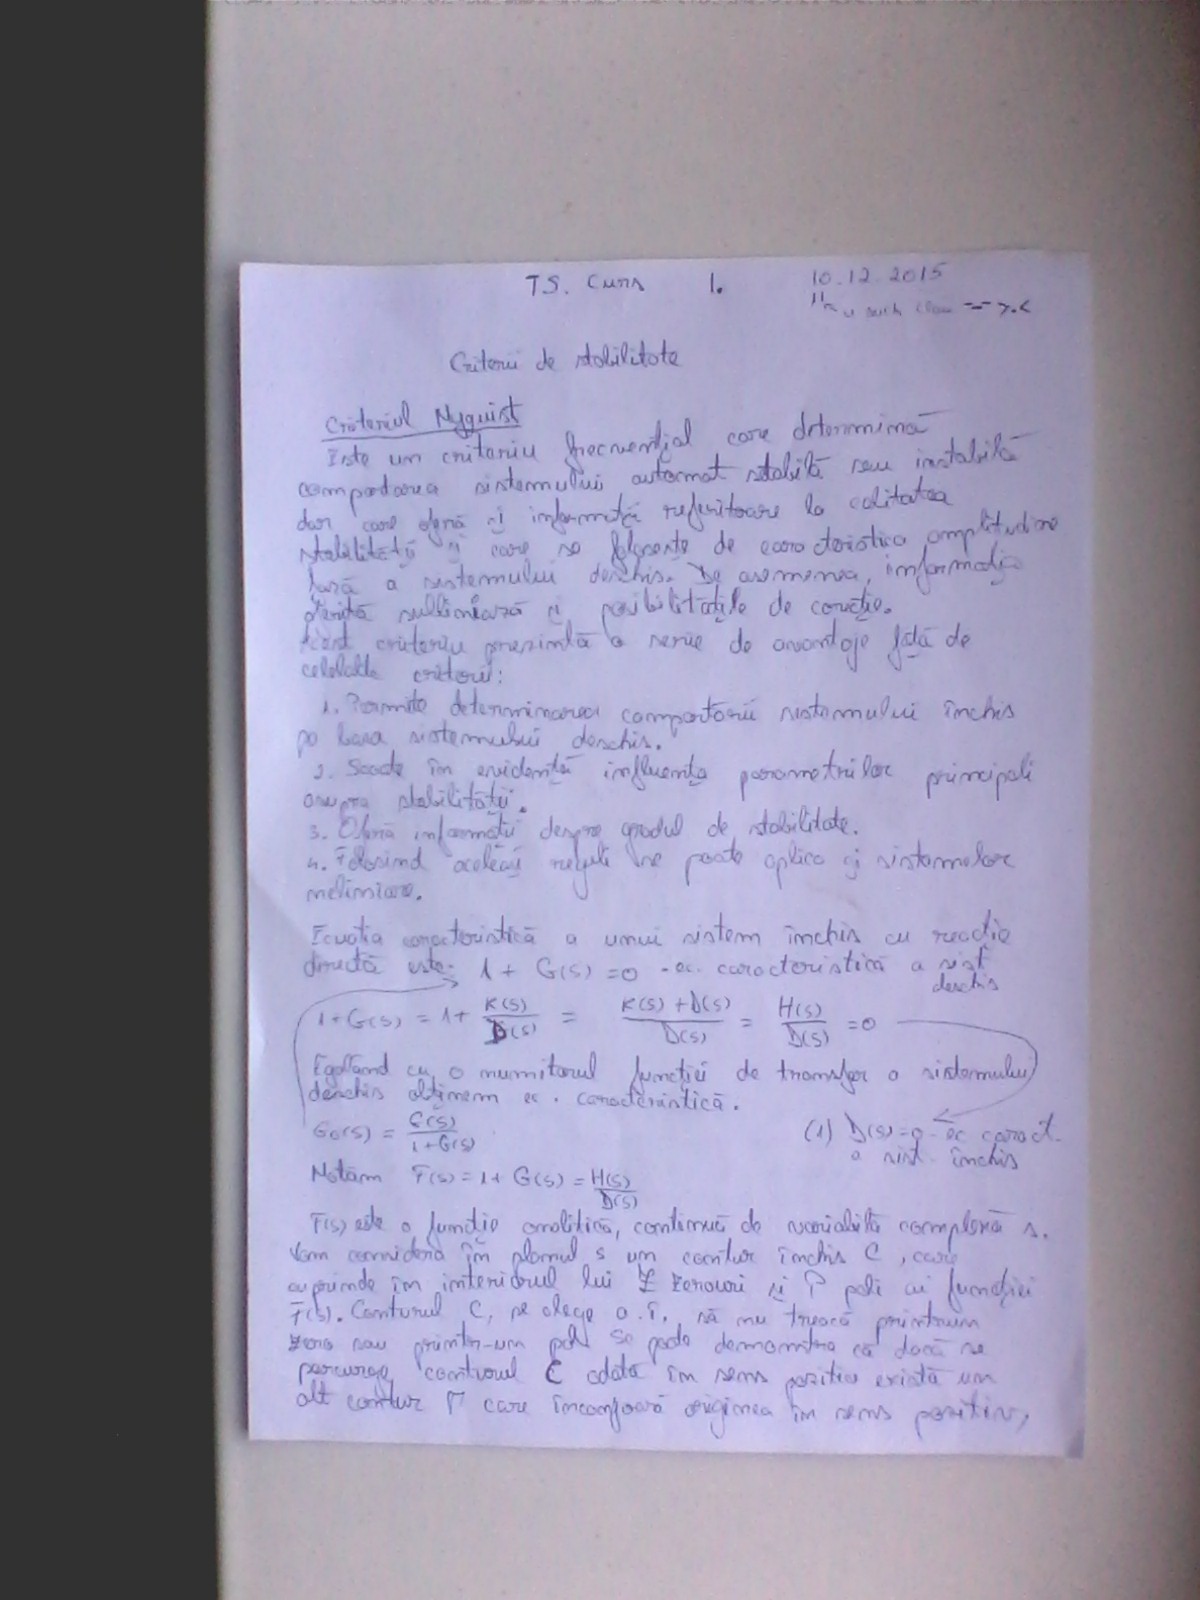 TS. Curs 1. 10.12.2015
such
Criterii de stabilitate
Criteriul Nyquist
Este un criteriu frecvențial care determină
comportarea sistemului automat stabilă sau instabilă
dar care oferă și informații referitoare la calitatea
stabilității și care se folosește de caracteristica amplitudine
fază a sistemului deschis. De asemenea, informația
oferită subliniază și posibilitățile de corecție.
Acest criteriu prezintă o serie de avantaje față de
celelalte criterii:
1. Permite determinarea comportării sistemului închis
pe baza sistemului deschis.
2. Scoate în evidență influența parametrilor principali
asupra stabilității.
3. Oferă informații despre gradul de stabilitate.
4. Folosind aceleași reguli se poate aplica și sistemelor
neliniare.
Ecuația caracteristică a unui sistem închis cu reacție
directă este: 1 + G(s) = 0 - ec. caracteristică a sist
deschis
1+G(s) = 1+ K(s)/D(s) = K(s)+D(s)/D(s) = H(s)/D(s) = 0
Egalând cu 0 numitorul funcției de transfer a sistemului
deschis obținem ec. caracteristică.
G0(s) = G(s)/1+G(s) (1) D(s)=0 - ec caract.
a sist. închis
Notăm F(s) = 1+ G(s) = H(s)/D(s)
F(s) este o funcție analitică, continuă de variabilă complexă s.
Vom considera în planul s un contur închis C, care
cuprinde în interiorul lui Z zerouri și P poli ai funcției
F(s). Conturul C, se alege a.î. să nu treacă printrun
zero sau printr-un pol. Se poate demonstra că dacă se
parcurge conturul C odată în sens pozitiv există un
alt contur Γ care înconjoară originea în sens pozitiv,